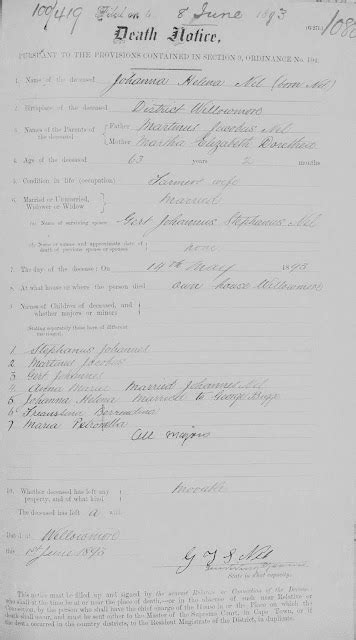 100/419 Filed on 8 June 1893
1086
Death Notice,
PURSUANT TO THE PROVISIONS CONTAINED IN SECTION 9, ORDINANCE No. 104.
1. Name of the deceased Johanna Helena Nel (born Nel)
2. Birthplace of the deceased District Willowmore
3. Names of the Parents of the deceased { Father Martinus Jacobus Nel
Mother Martha Elizabeth Dorothea
4. Age of the deceased 63 years 2 months
5. Condition in life (occupation) Farmers wife
6. Married or Unmarried, Widower or Widow } Married
(a) Name of surviving spouse Gert Johannes Stephanus Nel
(b) Name or names and approximate date of death of previous spouse or spouses } none
7. The day of the decease: On 14th May 1893
8. At what house or where the person died own house Willowmore
9. Names of Children of deceased, and whether majors or minors
Stating separately those born of different
1 Stephanus Johannes
2 Martinus Jacobus
3 Gert Johannes
4 Anna Maria Married Johannes Nel
5 Johanna Helena Married to George
6 Berendina
7 Maria Petronella
All majors
10. Whether deceased has left any property, and of what kind } Movable
The deceased has left a will
Dated at Willowmore
this 1st June 1893
G J S Nel
State in what capacity.
This notice must be filled up and signed by the nearest Relative or Connection of the Deceased who shall be at or near the place of death,—or in the absence of such near Relative or Connection, by the person who shall have the chief charge of the House in or the Place on which the death shall occur, and must be sent either to the Master of the Supreme Court, in Cape Town, or if the death occurred in the country districts, to the Resident Magistrate of the District, in duplicate.